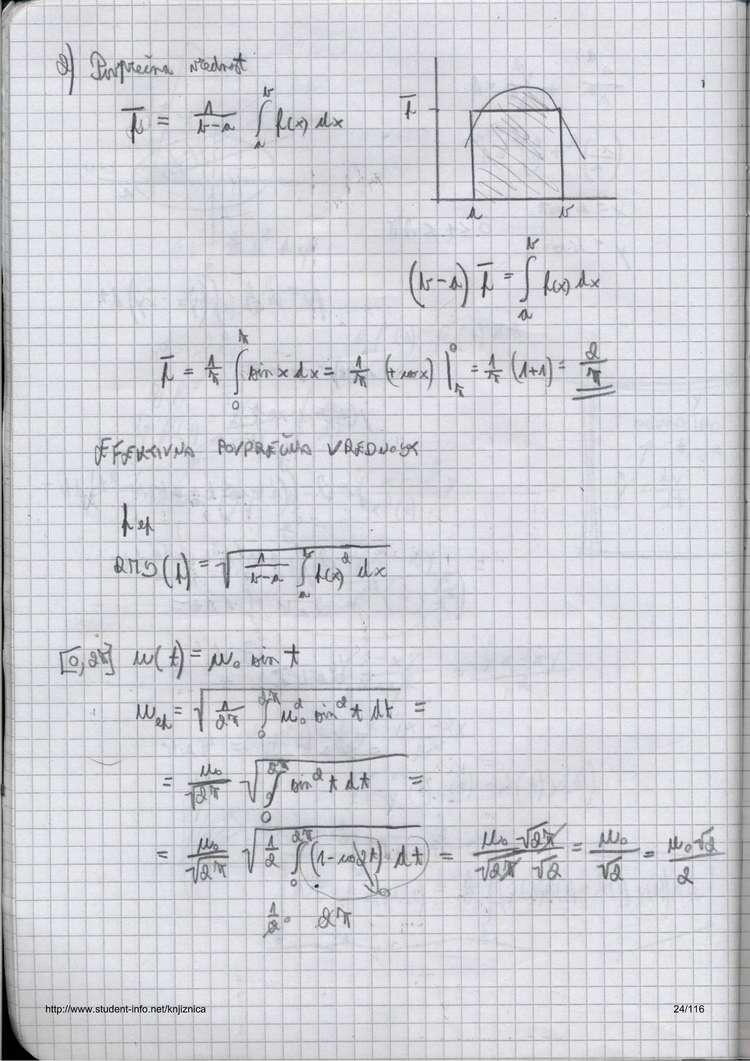 2) Povprečna vrednost
f̄ = 1/(b-a) ∫_a^b f(x) dx
f̄
a b
(b-a) f̄ = ∫_a^b f(x) dx
f̄ = 1/π ∫_0^π sin x dx = 1/π (+cos x) |_π^0 = 1/π (1+1) = 2/π
EFEKTIVNA POVPREČNA VREDNOST
f ef
(f) = √(1/(b-a) ∫_a^b f(x)² dx)
[0, 2π] u(t) = u₀ sin t
u_ef = √(1/2π ∫_0^2π u₀² sin² t dt) =
= u₀/√2π √(∫_0^2π sin² t dt) =
= u₀/√2π √(1/2 ∫_0^2π (1-cos 2t) dt) = u₀ √2π/(√2π √2) = u₀/√2 = u₀√2/2
0
1/2 · 2π
http://www.student-info.net/knjiznica
24/116